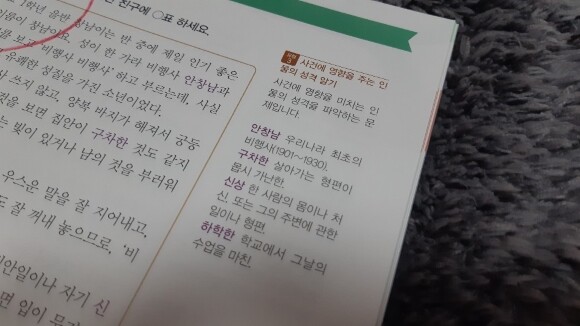 친구에 ○표 하세요.
1학년 을반 창남이는 반 중에 제일 인기 좋은
이름이 창남이요, 성이 한 가라 비행사 안창남과
보고 '비행사 비행사' 하고 부르는데, 사실
유쾌한 성질을 가진 소년이었다.
쓰지 않고, 양복 바지가 해져서 궁둥
것을 보면 집안이 구차한 것도 같지
는 빛이 있거나 남의 것을 부러워
우스운 말을 잘 지어내고,
도 잘 꺼내 놓으므로, '비
집안일이나 자기 신
면 입이
사건에 영향을 주는 인
물의 성격 알기
사건에 영향을 미치는 인
물의 성격을 파악하는 문
제입니다.
안창남 우리나라 최초의
비행사(1901~1930).
구차한 살아가는 형편이
몹시 가난한.
신상 한 사람의 몸이나 처
신 또는 그의 주변에 관한
일이나 형편.
하학한 학교에서 그날의
수업을 마친.